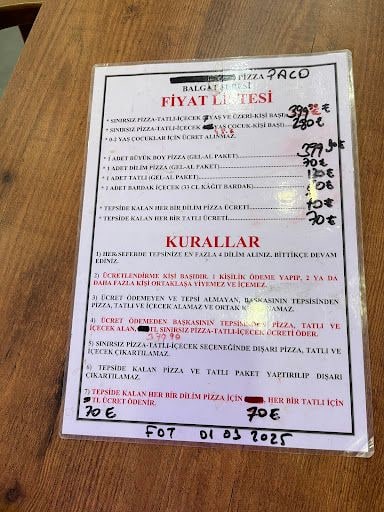 PİZZA PACO
BALGAT ŞUBESİ
FİYAT LİSTESİ
* SINIRSIZ PİZZA-TATLI-İÇECEK 7 YAŞ VE ÜZERİ-KİŞİ BAŞI 399,90 ₺
* SINIRSIZ PİZZA-TATLI-İÇECEK YAŞ ÇOCUK-KİŞİ BAŞI 280 ₺
* 0-2 YAŞ ÇOCUKLAR İÇİN ÜCRET ALINMAZ.
* 1 ADET BÜYÜK BOY PİZZA (GEL-AL PAKET)
* 1 ADET DİLİM PİZZA (GEL-AL PAKET) 70 ₺
* 1 ADET TATLI (GEL-AL PAKET)
* 1 ADET BARDAK İÇECEK (33 CL KÂĞIT BARDAK)
* TEPSİDE KALAN HER BİR DİLİM PİZZA ÜCRETİ 70 ₺
* TEPSİDE KALAN HER BİR TATLI ÜCRETİ 70 ₺
KURALLAR
1) HER SEFERDE TEPSİNİZE EN FAZLA 4 DİLİM ALINIZ. BİTTİKÇE DEVAM
EDİNİZ.
2) ÜCRETLENDİRME KİŞİ BAŞIDIR. 1 KİŞİLİK ÖDEME YAPIP, 2 YA DA
DAHA FAZLA KİŞİ ORTAKLAŞA YİYEMEZ VE İÇEMEZ.
3) ÜCRET ÖDEMEYEN VE TEPSİ ALMAYAN, BAŞKASININ TEPSİSİNDEN
PİZZA, TATLI VE İÇECEK ALAMAZ VE ORTAK KULLANAMAZ.
4) ÜCRET ÖDEMEDEN BAŞKASININ TEPSİSİNDEN PİZZA, TATLI VE
İÇECEK ALAN, TL SINIRSIZ PİZZA-TATLI-İÇECEK ÜCRETİ ÖDER.
5) SINIRSIZ PİZZA-TATLI-İÇECEK SEÇENEĞİNDE DIŞARI PİZZA, TATLI, VE
İÇECEK ÇIKARTILAMAZ.
6) TEPSİDE KALAN PİZZA VE TATLI PAKET YAPTIRILIP DIŞARI
ÇIKARTILAMAZ.
7) TEPSİDE KALAN HER BİR DİLİM PİZZA İÇİN HER BİR TATLI İÇİN
TL ÜCRET ÖDENİR.
70 ₺ 70 ₺
FOT 01 03 2025